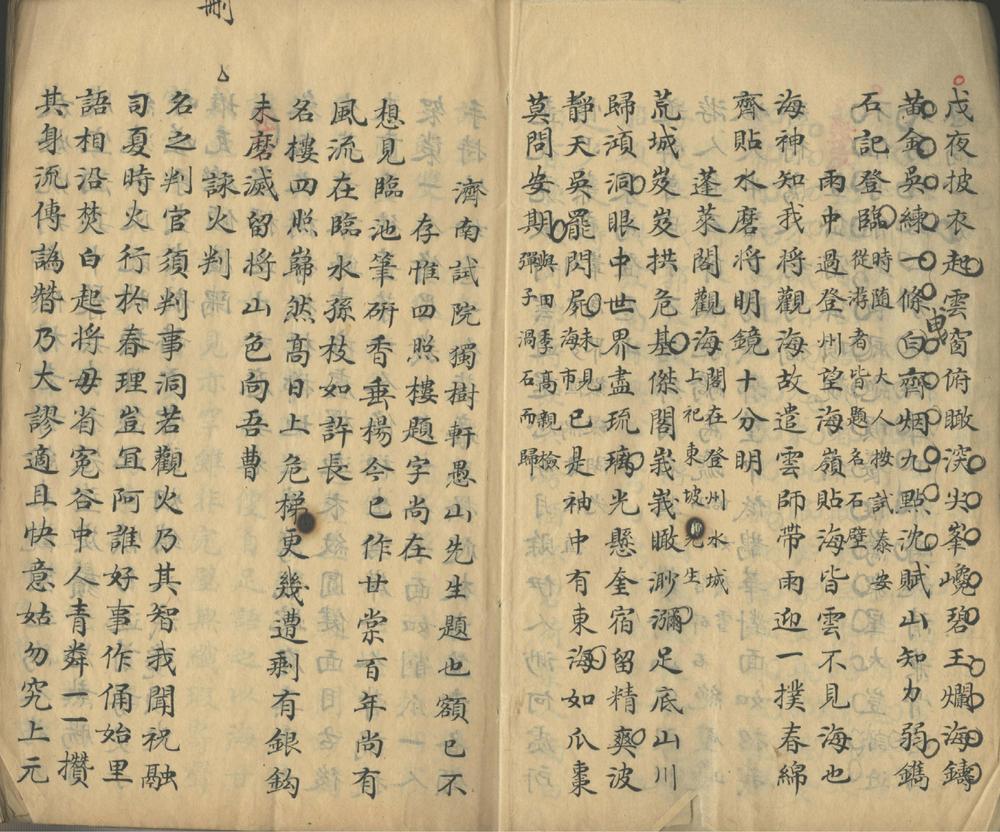 戊夜披衣起雲窗俯瞰深尖峯巉碧玉爛海鑄
黃金吳練一條白齊烟九點沈賦山知力弱鐫
曳
石記登臨時随大人按試泰安
從游者皆題名石壁
雨中過登州望海嶺貼海皆雲不見海也
海神知我將觀海故遣雲師帶雨迎一撲春綿
齊貼水磨將明鏡十分明
蓬萊閣觀海閣在登州水城
上祀東坡先生
荒城岌岌拱危基傑閣峩峩瞰渺瀰足底山川
歸澒洞眼中世界盡琉璃光懸奎宿留精爽波
靜天吳罷閃屍未見海市已是袖中有東海如瓜棗
莫問安期與田季高親檢
彈子渦石而歸
濟南試院獨樹軒愚山先生題也額已不
存惟四照樓題字尚在
想見臨池筆研香垂楊今已作甘棠百年尚有
風流在臨水孫枝如許長
名樓四照巋然高日上危梯更幾遭剩有銀鈎
未磨滅留將山色向吾曹
刪
詠火判
名之判官須判事洞若觀火乃其智我聞祝融
司夏時火行於春理豈宜阿誰好事作俑始里
語相沿焚白起將毋省寃谷中人青燐一一攢
其身流傳譌朁乃大謬適且快意姑勿究上元